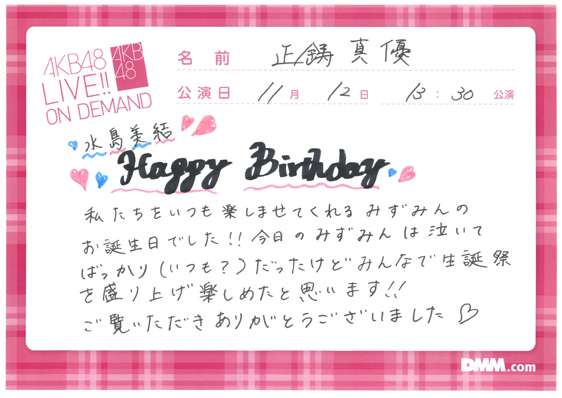 AKB48
LIVE!!
ON DEMAND
AKB
48
名前 正鋳真優
公演日 11月12日 13:30公演
水島美結
Happy Birthday
私たちをいつも楽しませてくれるみずみんの
お誕生日でした!!今日のみずみんは泣いて
ばっかり(いつも?)だったけどみんなで生誕祭
を盛り上げ楽しめたと思います!!
ご覧いただきありがとうございました♡
DMM.com